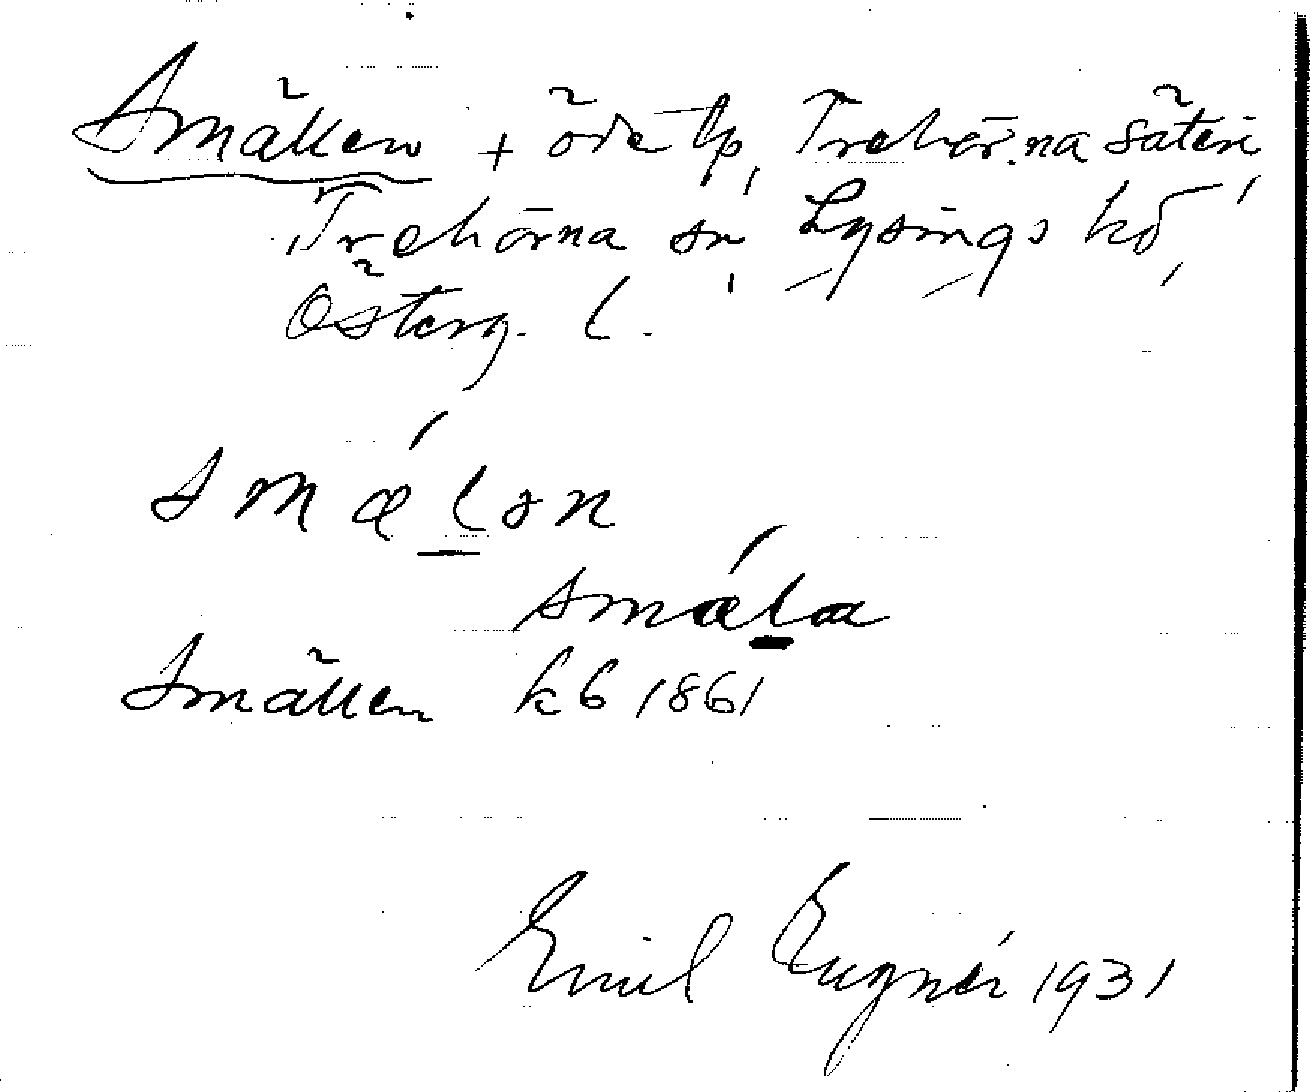 Smällen + öde tp, Trehörna säteri,
Trehörna sn, Lysings hd,
Österg. l.
smǽlən
smǽla
Smällen kb 1861
Emil Lugnér 1931